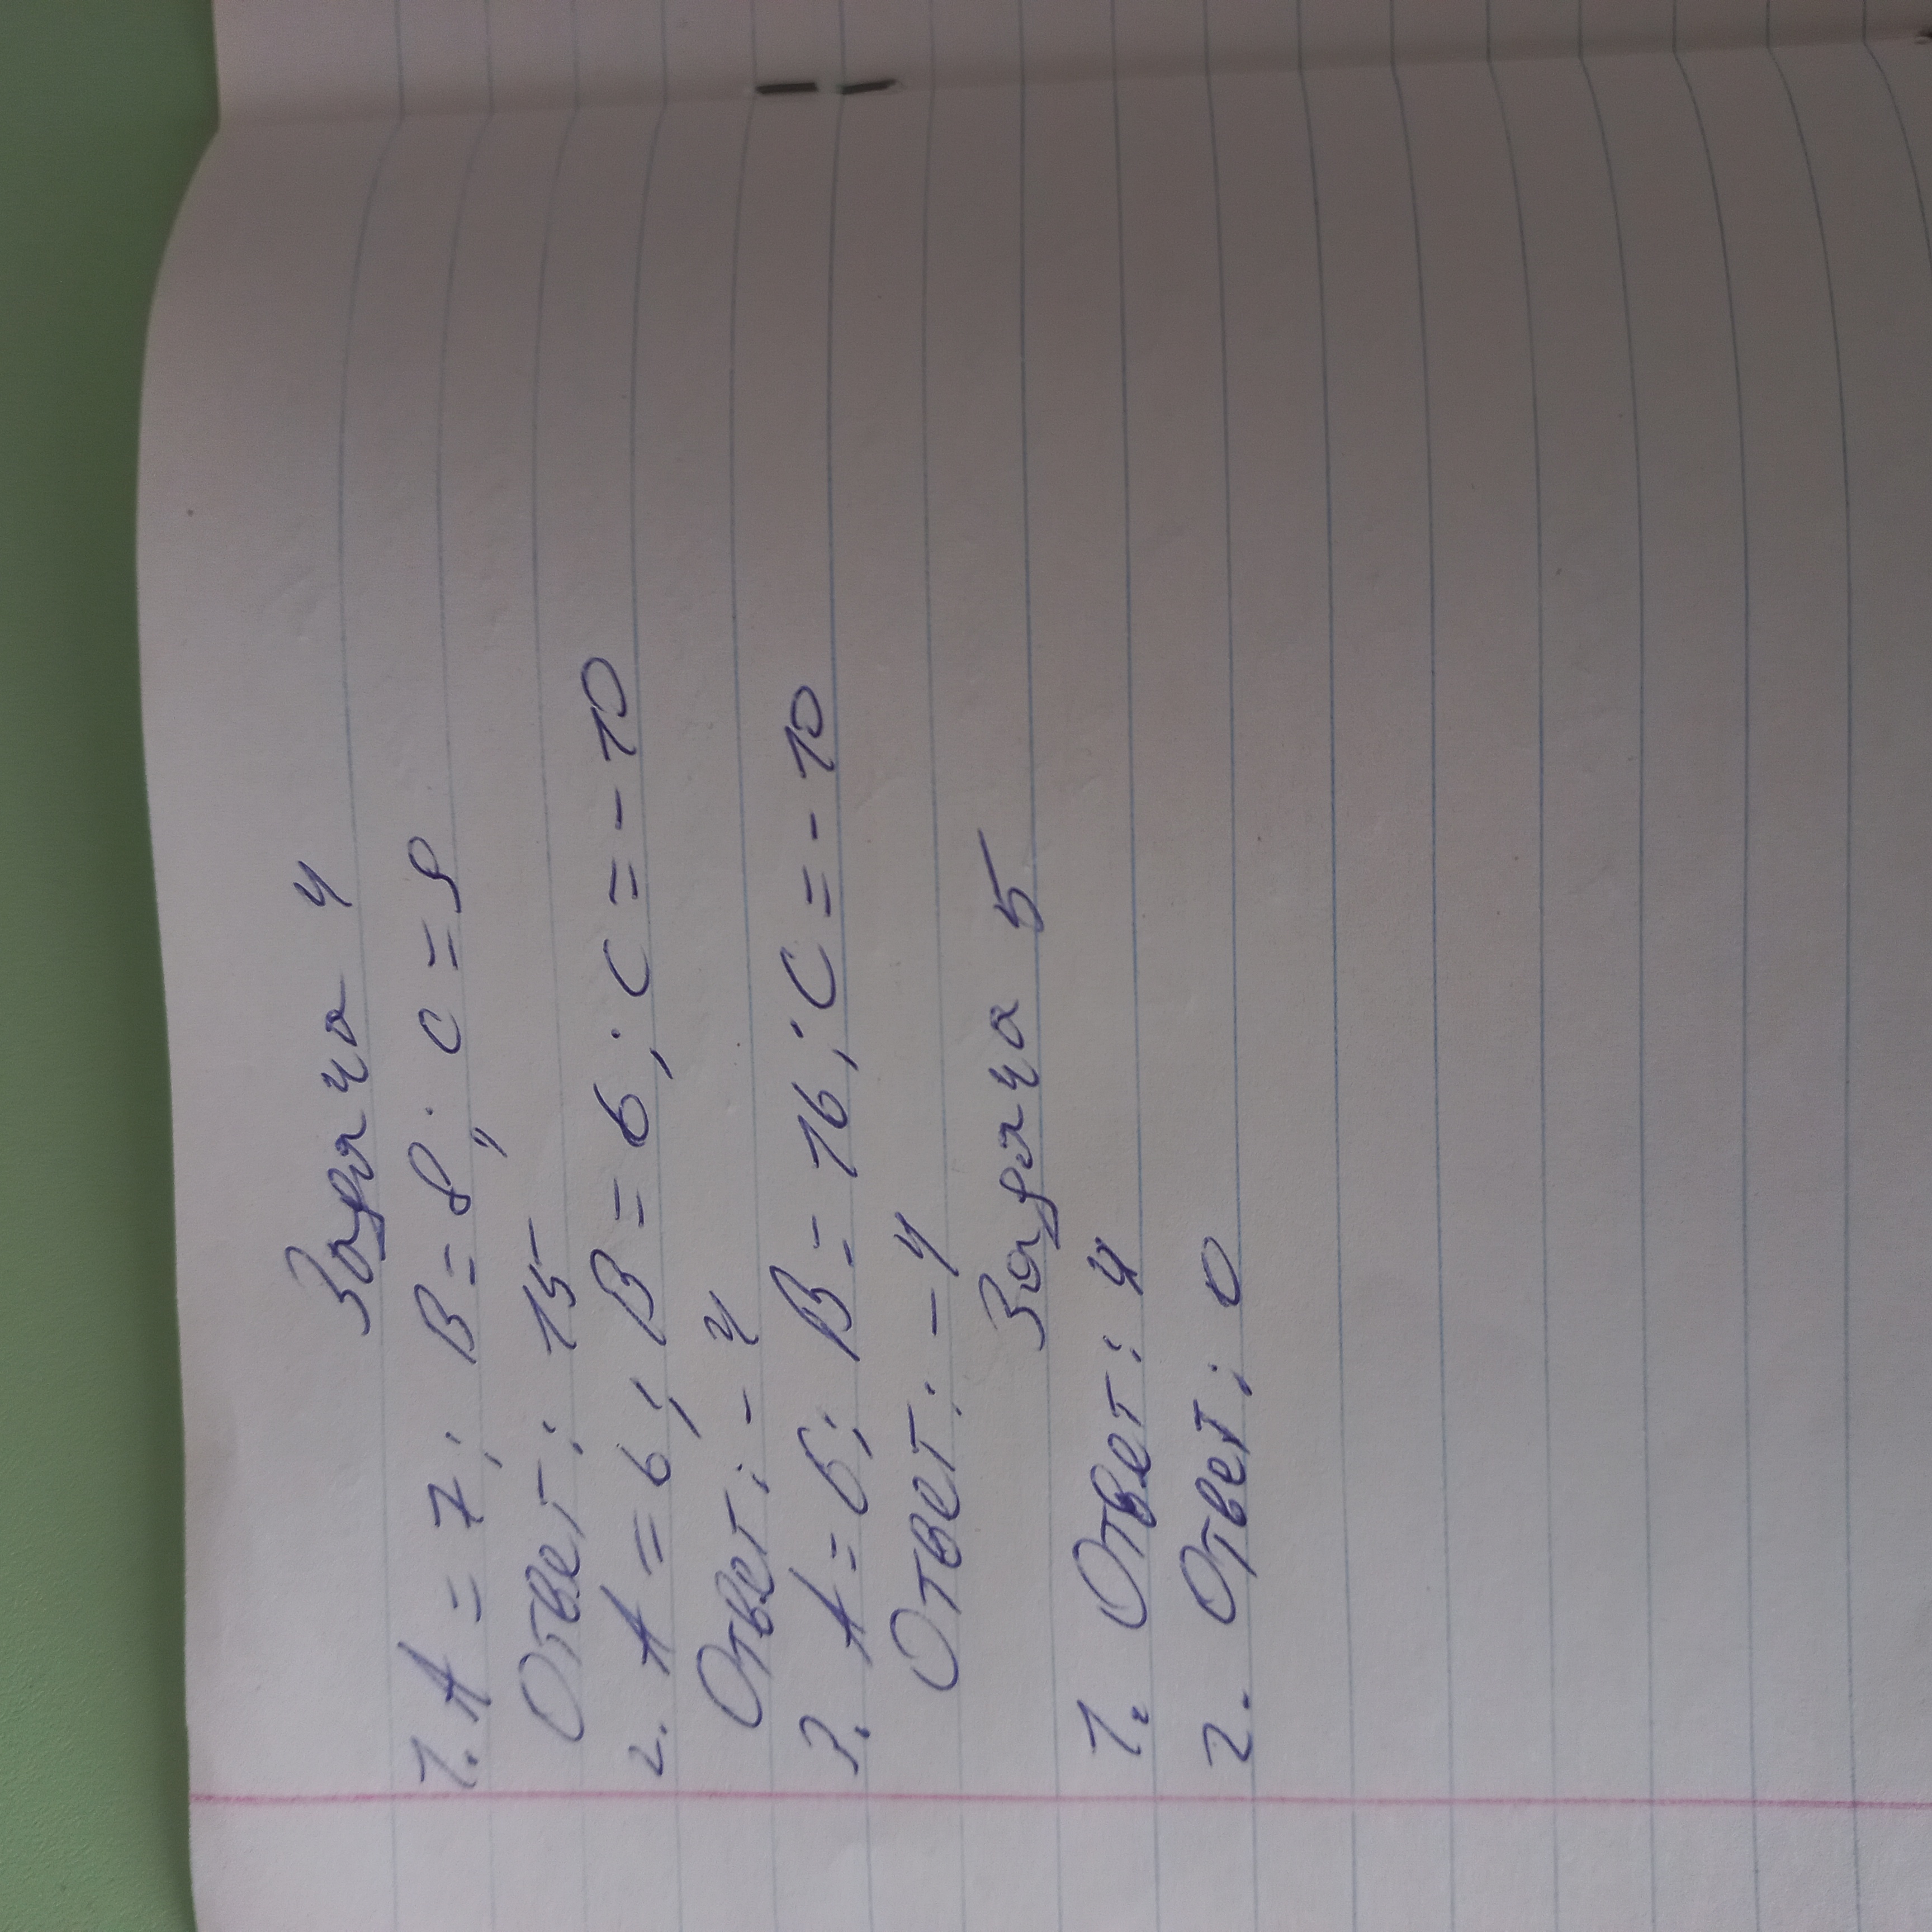 Задача 4
1. A = 7; B = 8; C = 9
Ответ: 15
2. A = 6; B = 6; C = -10
Ответ: -4
3. A = 6; B = 16; C = -10
Ответ: -4
Задача 5
1. Ответ: 4
2. Ответ: 0